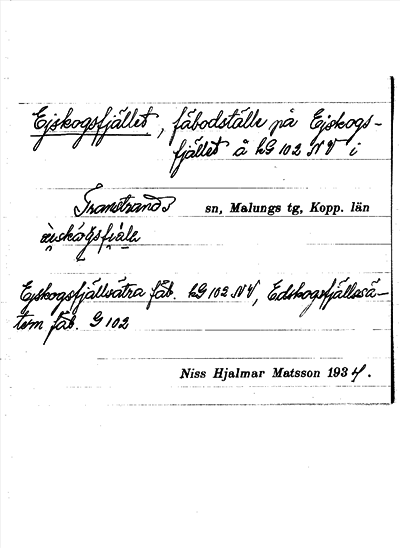 Ejskogsfjället, fäbodställe på Ejskogs-
fjället å kG 102 NV i
Transtrands sn, Malungs tg, Kopp. län
Ejskogsfjällsätra fäb. kG 102 NV, Edskogsfjällssä-
tern fäb. G 102
Niss Hjalmar Matsson 1934.